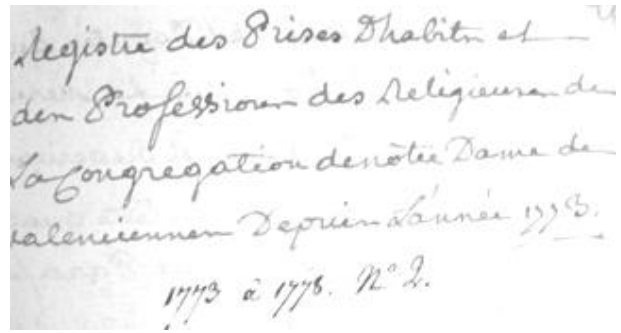 Registre des Prises Dhabits et
des Professions des Religieuses de
La Congregation denôtre Dame de
valenciennes Depuis L'année 1773.
1773 à 1778. N° 2.